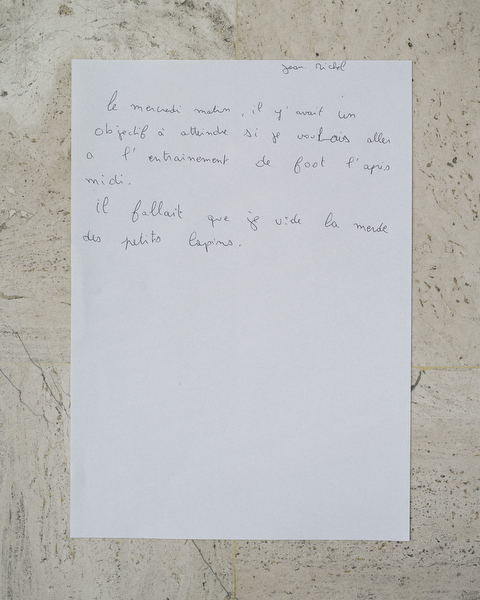 Jean Michel
le mercredi matin, il y'avait un
objectif à atteindre si je voulais aller
a l'entrainement de foot l'après
midi.
Il fallait que je vide la merde
des petits lapins.